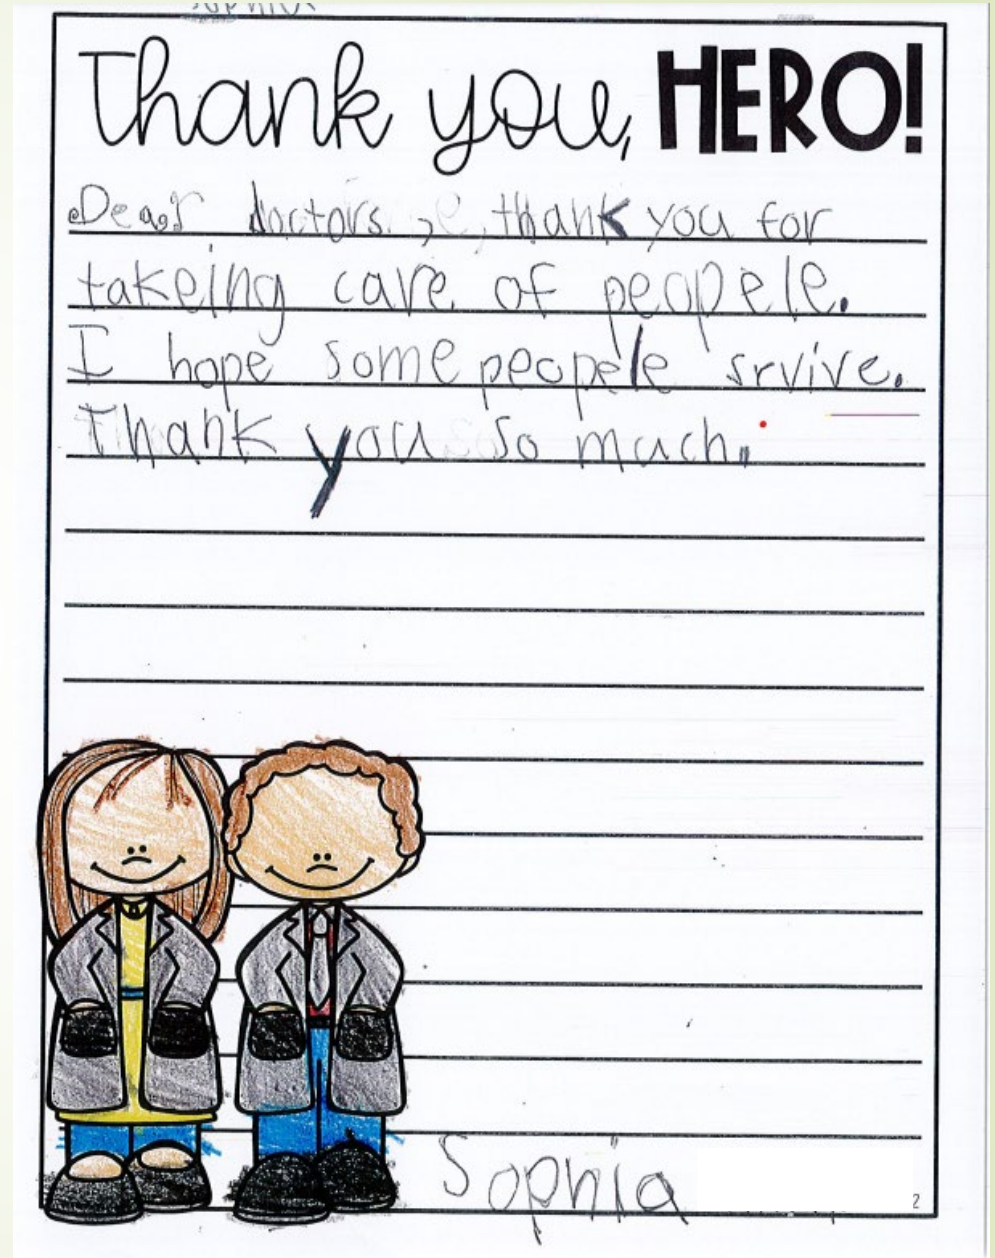 Sophia
Thank you, HERO!
Dear doctors, thank you for
takeing care of peopele.
I hope some peopele srvive.
Thank you so much.
Sophia
2